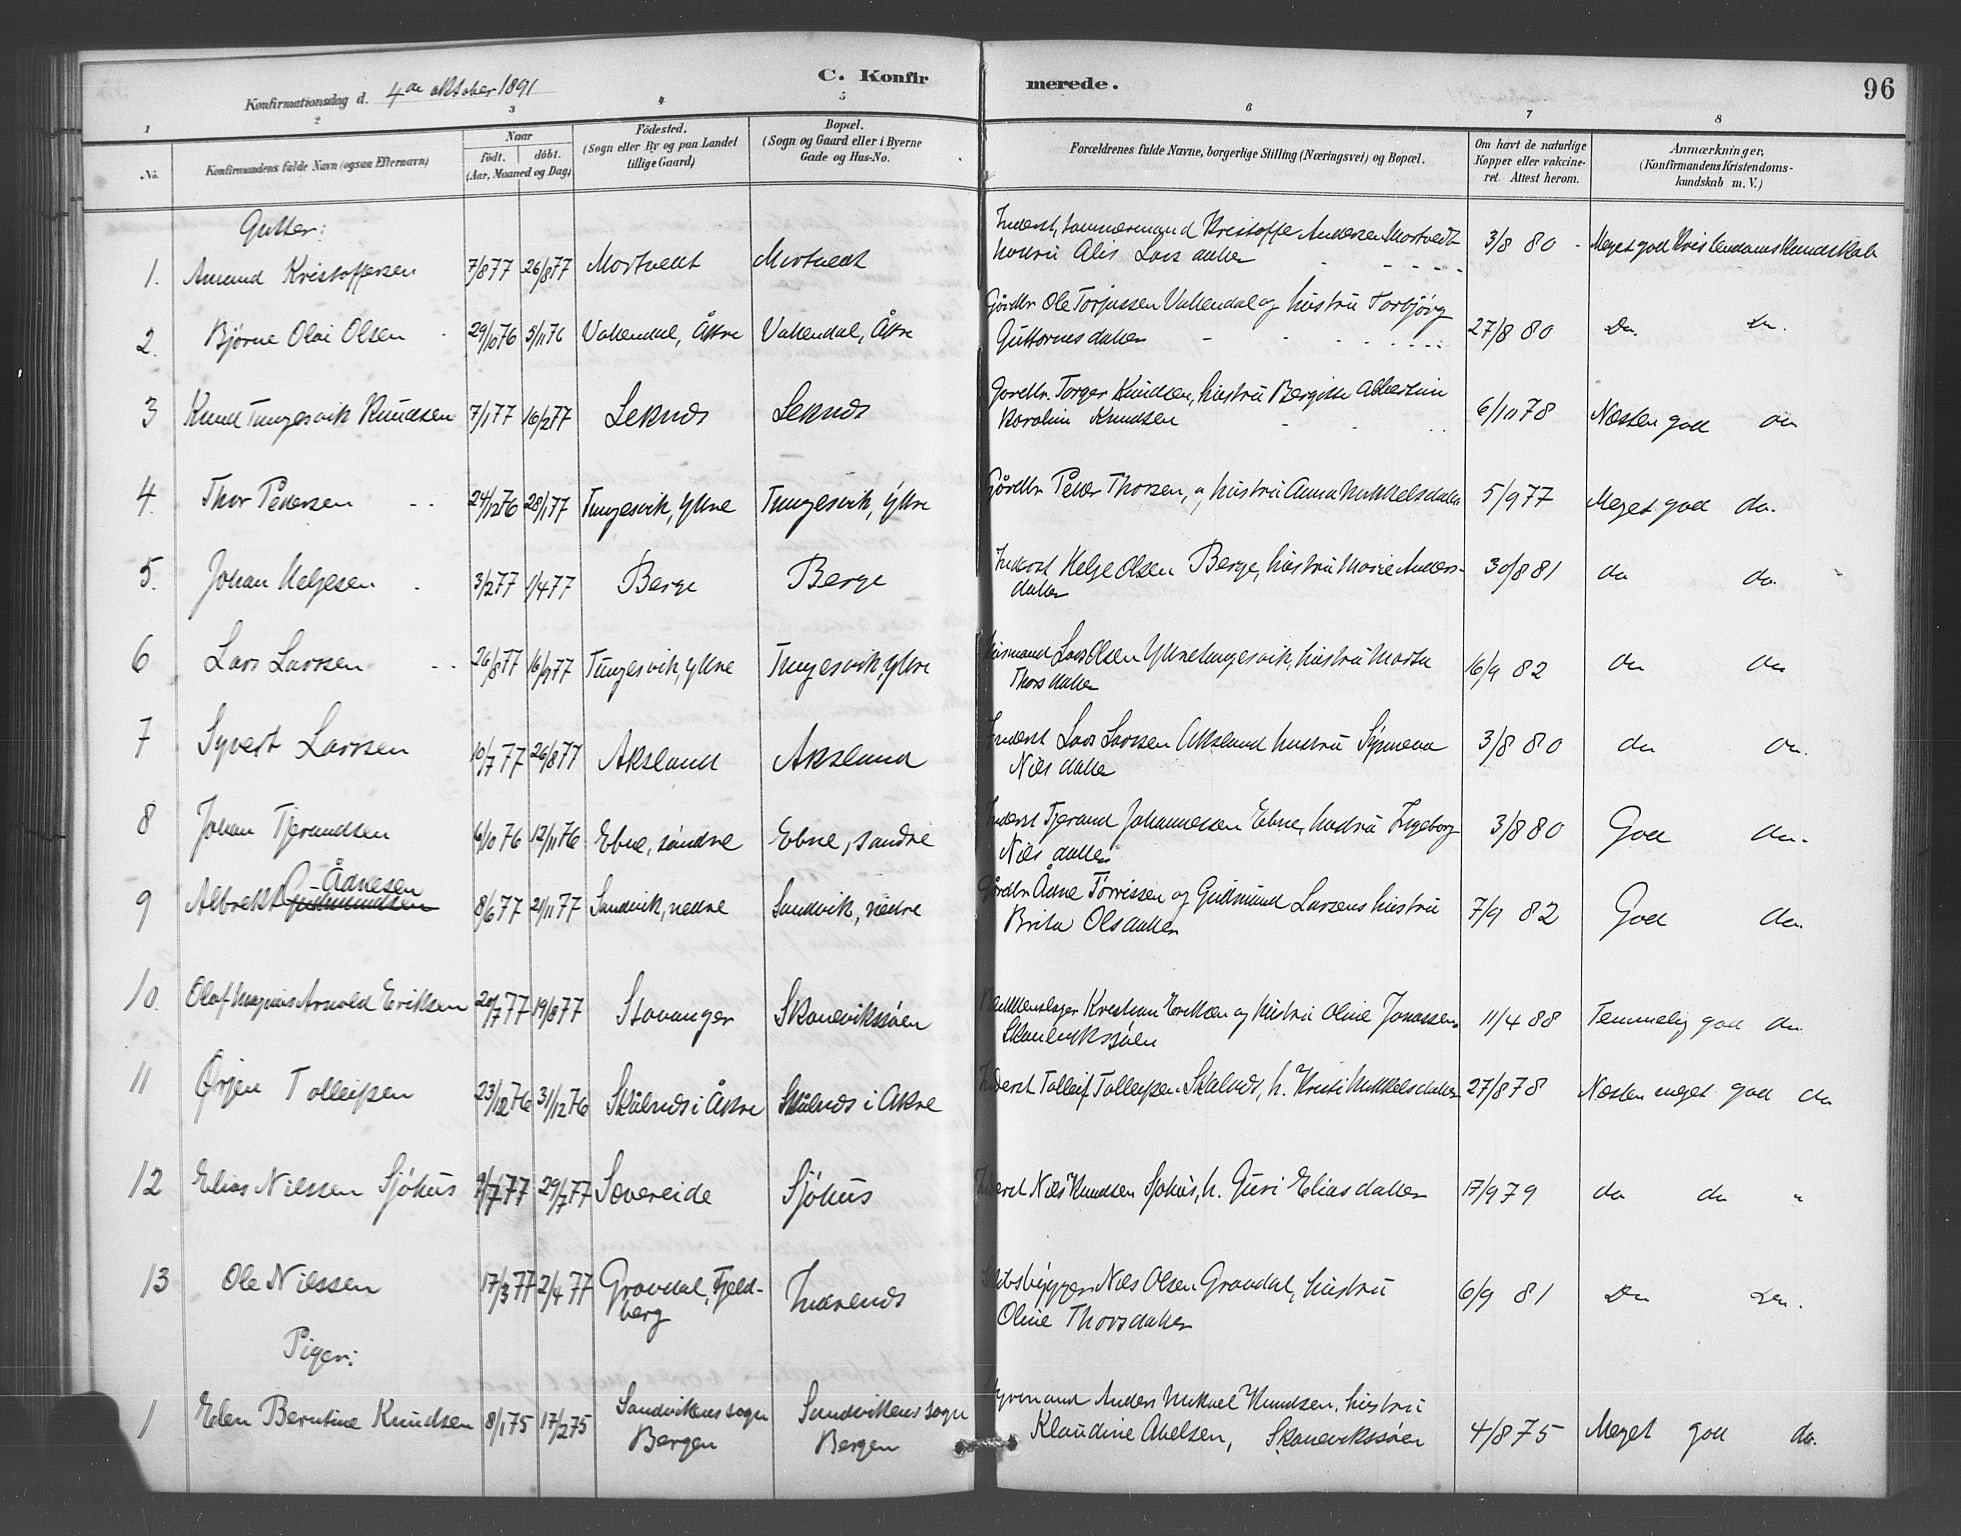 C. Konfirmerede.
96
Konfirmationsdag d. 4de oktober 1891
1 2 3 4 5 6 7 8
No. Konfirmandens fulde Navn (ogsaa Efternavn)
Naar födt. döbt. (Aar, Maaned og Dag)
Födested. (Sogn eller By og paa Landet tillige Gaard)
Bopæl. (Sogn og Gaard eller i Byerne Gade og Hus-No.
Forældrenes fulde Navne, borgerlige Stilling (Næringsvei) og Bopæl.
Om havt de naturlige Kopper eller vakcineret. Attest herom.
Anmærkninger, (Konfirmandens Kristendomskundskab m. V.)
Gutter:
1. Amund Kristoffersen 7/8 77 26/8 77 Mortvedt Mortvedt Inderst, tømmermand Kristoffer Andersen Mortvedt
hustru Alis Larsdatter 3/8 80 Meget god Kristendomskundskab
2. Bjørne Olai Olsen 29/10 76 5/11 76 Vakendal, Åkre Vakendal, Åkre Gårdbr Ole Torjussen Vakendal og hustru Torbjørg
Guttormsdatter 27/8 80 Do. Do.
3 Knud Tungesvik Knudsen 7/1 77 16/2 77 Leknes Leknes Gårdbr. Torger Knudsen, hustru Bergitte Albertine
Karoline Knudsen 6/11 78 Næsten god do
4. Thor Pedersen 24/12 76 28/1 77 Tungesvik, ytre Tungesvik, ytre Gårdbr Peder Thorsen, og hustru Anna Mikkelsdatter 5/9 77 Meget god do.
5. Johan Helgesen 3/2 77 1/4 77 Berge Berge Inderst Helge Olsen Berge, hustru Marie Anders-
datter 30/8 81 do do.
6 Lars Larsen 26/8 77 16/9 77 Tungesvik, ytre Tungesvik, ytre Husmand Lars Olsen Ytre Tungesvik, hustru Marta
Thorsdatter 16/9 82 do do
7 Syvert Larsen 10/7 77 26/8 77 Aksland Aksland Inderst Lars Larsen Aksland hustru
Nilsdatter 3/8 80 do do.
8 Johan Tjerandsen 6/10 76 12/11 76 Ebne, søndre Ebne, søndre Inderst Tjerand Johannessen Ebne, hustru Ingeborg
Nilsdatter 3/8 80 God do.
9 Albrekt Ådnesen 8/6 77 2/11 77 Sandvik, nedre Sandvik, nedre Gårdbr Ådne Tørrissen og Gudmund Larsens hustru
Brita Olsdatter 7/9 82 God do.
10. Olaf Magnus Arnold Eriksen 20/7 77 19/8 77 Stavanger Skånevikssøen Kristian Eriksen og hustru Oline Jonassen.
Skånevikssøen 11/4 88 Temmelig god do.
11 Ørjen Tolleifsen 23/12 76 31/12 76 Skålnes i Åkre Skålnes i Åkre Inderst Tolleif Tolleifsen Skålnes, h. Kristi Mikkelsdatter 27/8 78 Næsten meget god do
12 Elias Nilssen Sjøhus 9/7 77 29/7 77 Sævereide Sjøhus Inderst Nils Knudsen Sjøhus, h. Guri Eliasdatter 17/9 79 do do "
13 Ole Nilssen 17/3 77 2/4 77 Gravdal, Fjeld-
berg Indrenes Skibsbygger Nils Olsen Gravdal, hustru
Oline Thorsdatter 6/9 81 Do Do.
Piger:
1 Elen Berntine Knudsen 8/1 75 17/2 75 Sandvikens sogn
Bergen Sandvikens sogn
Bergen Styrmand Anders Mikael Knudsen, hustru
Klaudine Abelsen, Skånevikssøen 4/8 75 Meget god do.